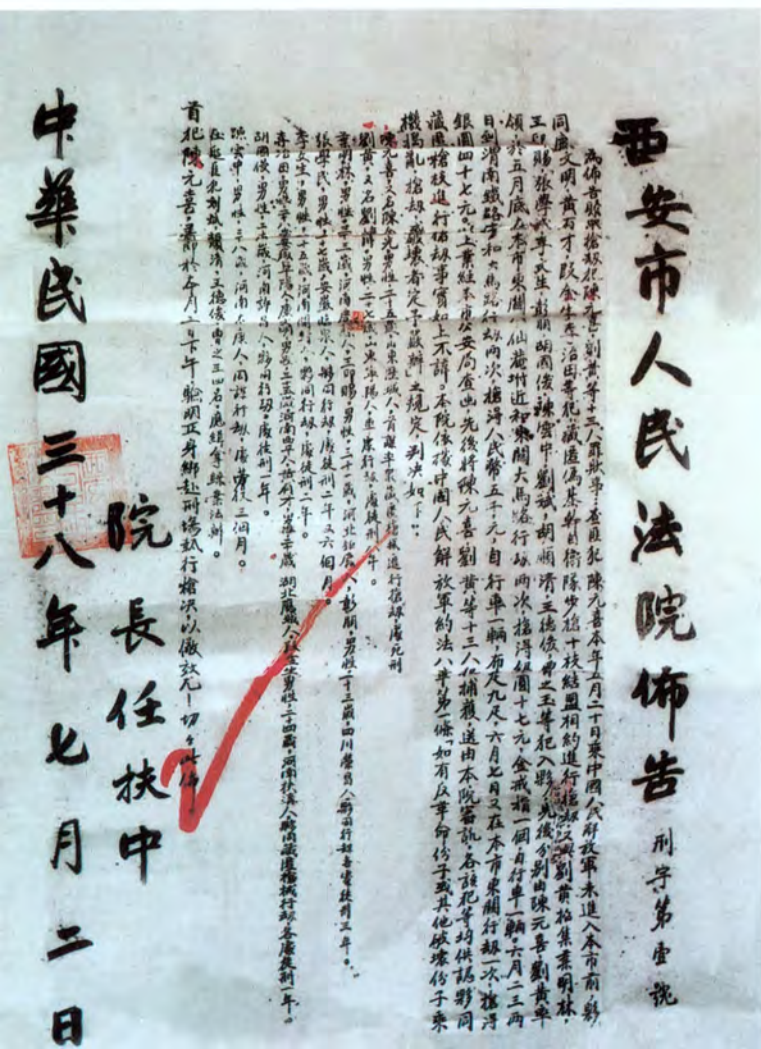 西安市人民法院佈告 刑字第壹號
為佈告 搶劫犯陳元喜、劉黄等十三人罪狀事:查匪犯陳元喜本年五月二十日乘中國人民解放軍未進入本市前,夥
同 文明、黄百才、段金生、 治田等犯,藏匿偽 自衛隊步槍十枝結盟相約進行搶劫。又與劉黄招集葉明林、
王 賜、張學武、李文生、彭朋、胡國俊、陳雲中、劉斌、胡順清、王德俊、曹之玉等犯入夥,先後分别由陳元喜、劉黄率
領,於五月底在本市東關八仙菴附近和東關大馬路行劫两次,搶得銀圓十七元,金戒指一個,自行車一輛。六月二三两
日到渭南鐵路 和大馬路行劫两次,搶得人民幣五千元,自行車一輛,布尺九尺。六月七日又在本市東關行劫一次,搶得
銀圓四十七元。以上業經本市公安局查出,先後將陳元喜劉黄等十三人 捕獲,送由本院審訊,各該犯等均供認夥同
藏匿槍枝進行搶劫事實如上不諱。本院依據中國人民解放軍約法八章第一條「如有反革命份子或其他破壞份子乘
機搗亂,搶劫、破壞者定予嚴辦」之規定,判決如下:
陳元喜又名陳 光,男性,二十五歲,山東 城人,首謀率衆藏匿槍枝進行搶劫,處死刑
劉黄,又名劉 ,男性,二七歲,山東 陽人, 行劫,處徒刑 年。
葉明林,男性,二十三歲,河南 人。 賜,男性,三十一歲,河北 人。彭朋,男性,二十三歲,四川 人,夥同行劫各處徒刑三年。
張學 ,男性,十七歲,安徽臨泉人,夥同行劫,處徒刑二年又六個月。
李文生,男性,十五歲,河南開封人,夥同行劫,處徒刑二年。
治田,男性, 歲,安徽阜陽人。 文明,男性,二五歲,河南 人。黄百才,男性, 歲,湖北 人。段金生,男性,二十四歲,河南扶溝人,夥同藏匿槍械行劫,各處徒刑一年。
胡國俊,男性,二十 歲,河南許昌人,夥同行劫,處徒刑一年。
陳雲中,男性,二八歲,河南太康人,同謀行劫,處勞役三個月。
在逃首犯劉斌、胡順清、王德俊、曹之玉四名,應緝拿歸案法辦。
首犯陳元喜,業經於本月二日下午,驗明正身綁赴刑場執行槍决,以儆效尤!切切此佈。
院長任扶中
中華民國三十八年七月二日